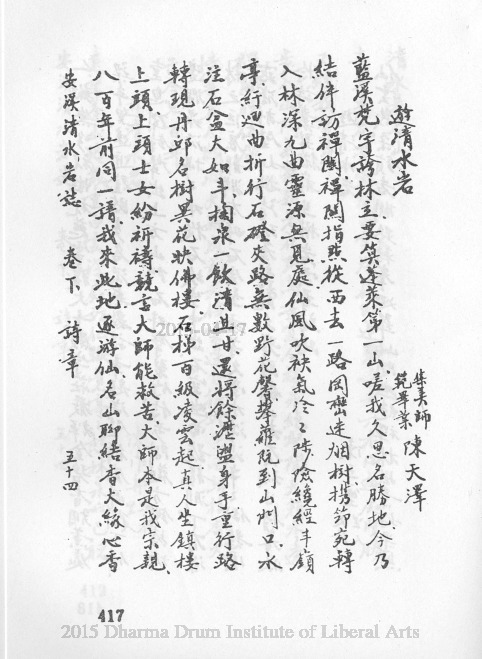 遊清水岩
集美師
範畢業 陳天澤
藍溪梵宇誇林立要算蓬萊第一山嗟我久思名勝地今乃
結伴訪禪關禪關指點從西去一路岡巒迷烟樹携筇宛轉
入林深九曲靈源無覓處仙風吹袂氣冷冷陟險繞經半嶺
亭紆迴曲折行石磴夾路無數野花馨攀蘿既到山門口水
注石盆大如斗掬泉一飲清且甘還將餘瀝盥身手重行路
轉現丹邱名樹異花映佛樓石梯百級凌雲起真人坐鎮樓
上頭上頭士女紛祈禱競言大師能救苦大師本是我宗親
八百年前同一譜我來此地逐游仙名山聊結香火緣心香
安溪清水岩誌 卷下 詩章 五十四
2015-03-17
417
2015 Dharma Drum Institute of Liberal Arts